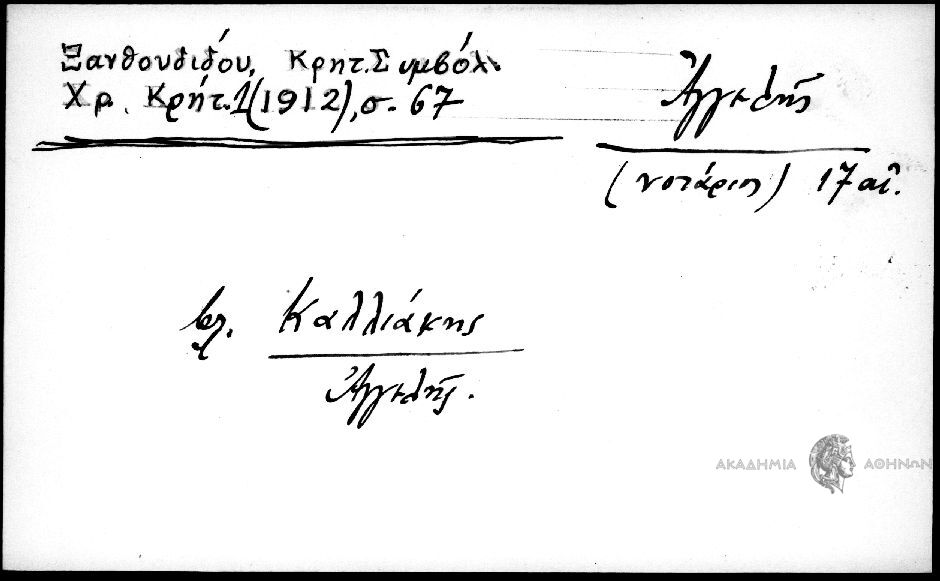 Ξανθουδίδου, Κρητ. Συμβόλ.
Χρ. Κρήτ. 1 (1912), σ. 67
Ἀγγελῆς
(νοτάριος) 17 αἰ.
βλ. Καλλιάκης
Ἀγγελῆς.
ΑΚΑΔΗΜΙΑ ΑΘΗΝΩΝ